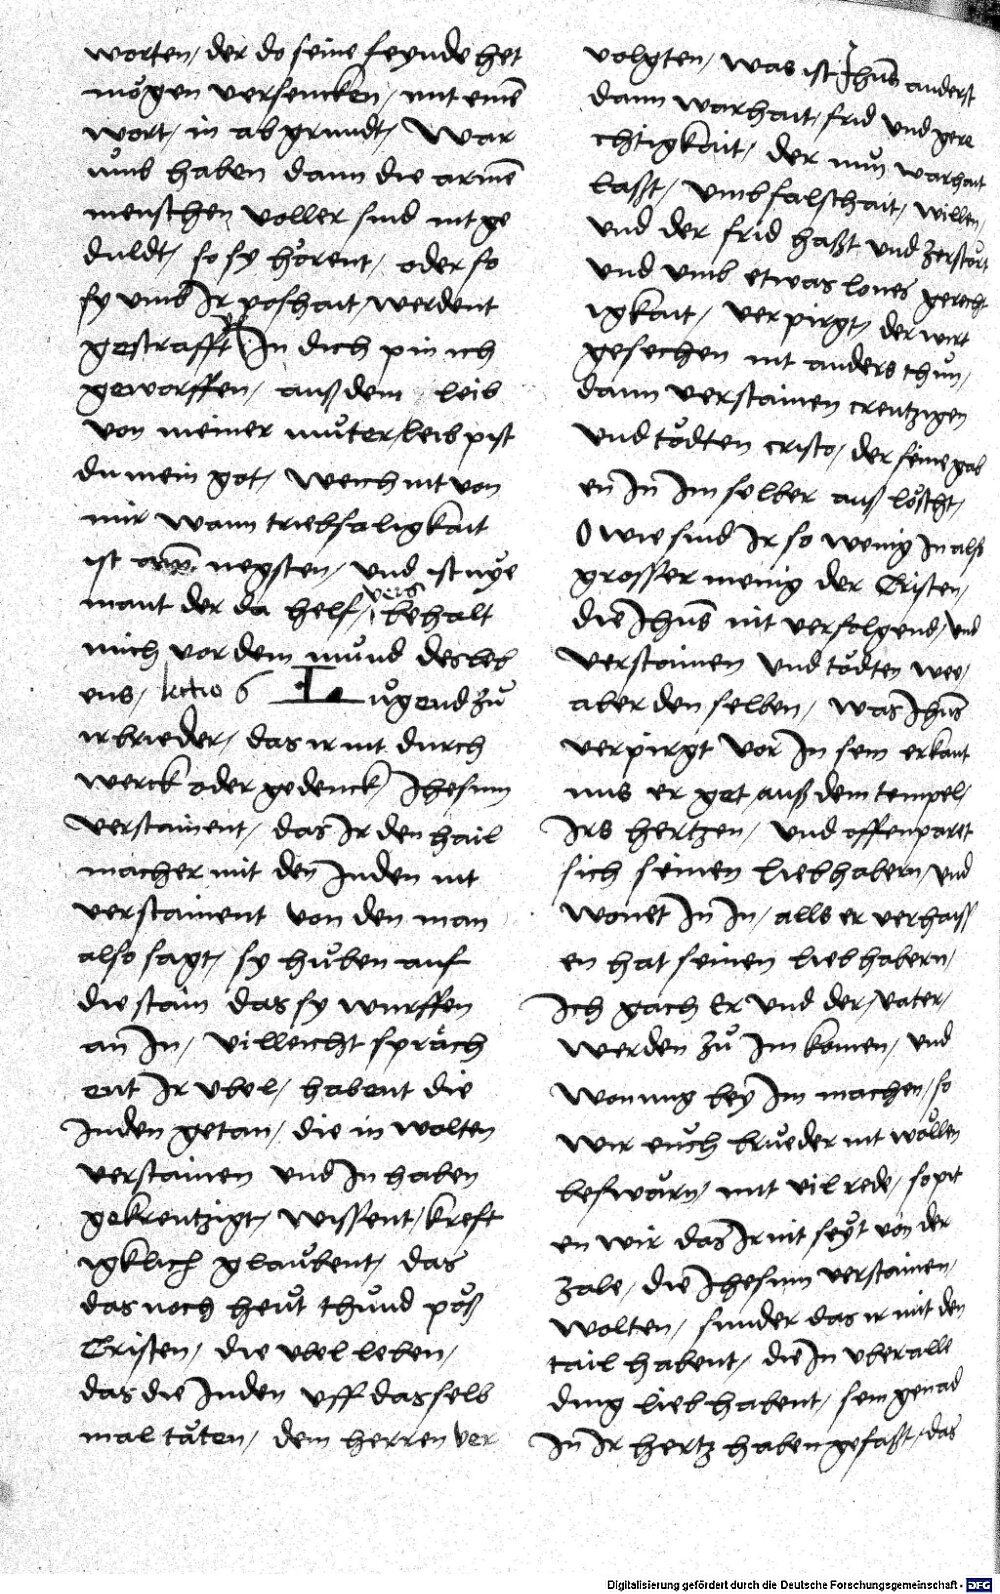 worten / der do seine feynde het
mögen versencken / mit einē
wort / in abgrundt / War
umb haben dann die armē
menschen voller sind nit ge
duldt / so sy hörent / oder so
sy umb Ir poshait werdent
gestrafft / In dich pin ich
geworffen / auß dem leib
von meiner muter leib pist
du mein got / weich nit von
mir wann triebsaligkait
ist am negsten / und ist nye
mant der da helf / vers behalt
mich vor dem mund des leb
ens / lectio 6 L ugend zu
ir brieder / das ir nit durch
werck oder gedenck / Ihesum
verstainent / das Ir den hail
macher mit den Juden nit
verstainent von den man
also sagt / sy huben auf
die stain das sy wurffen
an In / villeicht spräch
ent Ir ubel / habent die
Juden getan / die in wolten
verstainen und In haben
gekreutzigt / wissent / kreft
igklich glaubent / das
das noch heut thund pöß
Cristen / die ubel leben /
das die Juden uff dasselb
mal täten / dem herren ver
volgten / was ist Jhūs anderst
dann warhait / frid und gere
chtigkait / der nun warhait
laßt / umb falschait / willen /
und der frid haßt und zerstört
und umb etwas lones gerecht
igkait / verpirgt / der wirt
gesechen nit anders thun /
dann verstainen creutzigen
und tödten cristo / der seine gab
en In Im selber auß löscht /
O wie sind Ir so wenig In also
grosser menig der Cristen /
die Jhūs nit verfolgend / und
verstainen und tödten wee /
aber den selben / was Jhūs
verpirgt vor In sein erkant
nus er get auß dem tempel /
Irs hertzen / und offenparet
sich seinen liebhabern / und
wonet In In / alls er verhaiss
en hat seinen liebhabern /
Ich gach Er und der / vater /
werden zu Im komen / und
wonung bey Im machen / so
wir euch brueder nit wöllen
beswärn / mit vil rede / so pit
en wir das Ir nit seyt von der
zale / die Ihesum verstainen /
wolten / sunder das ir mit den
tail habent / die In uber alle
ding lieb habent / sein genad
In Ir hertz haben gefaßt / das
Digitalisierung gefördert durch die Deutsche Forschungsgemeinschaft - DFG